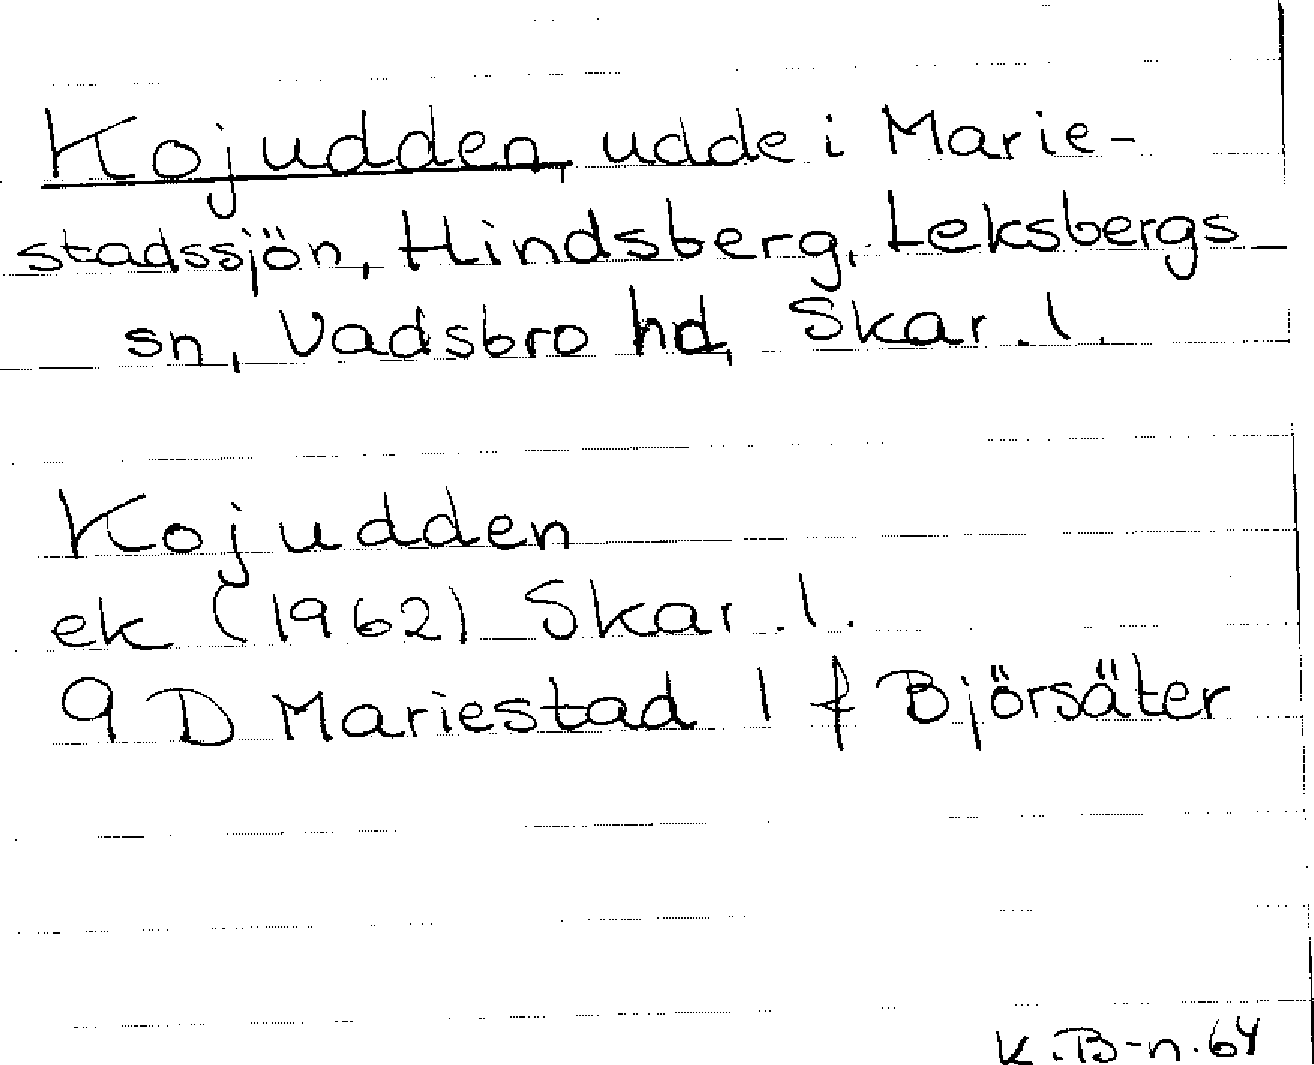 Kojudden, udde i Marie-
stadssjön, Hindsberg, Leksbergs
sn, Vadsbro hd, Skar. l.
Kojudden
ek (1962) Skar. l.
9 D Mariestad 1 f Björsäter
K.B-n. 64